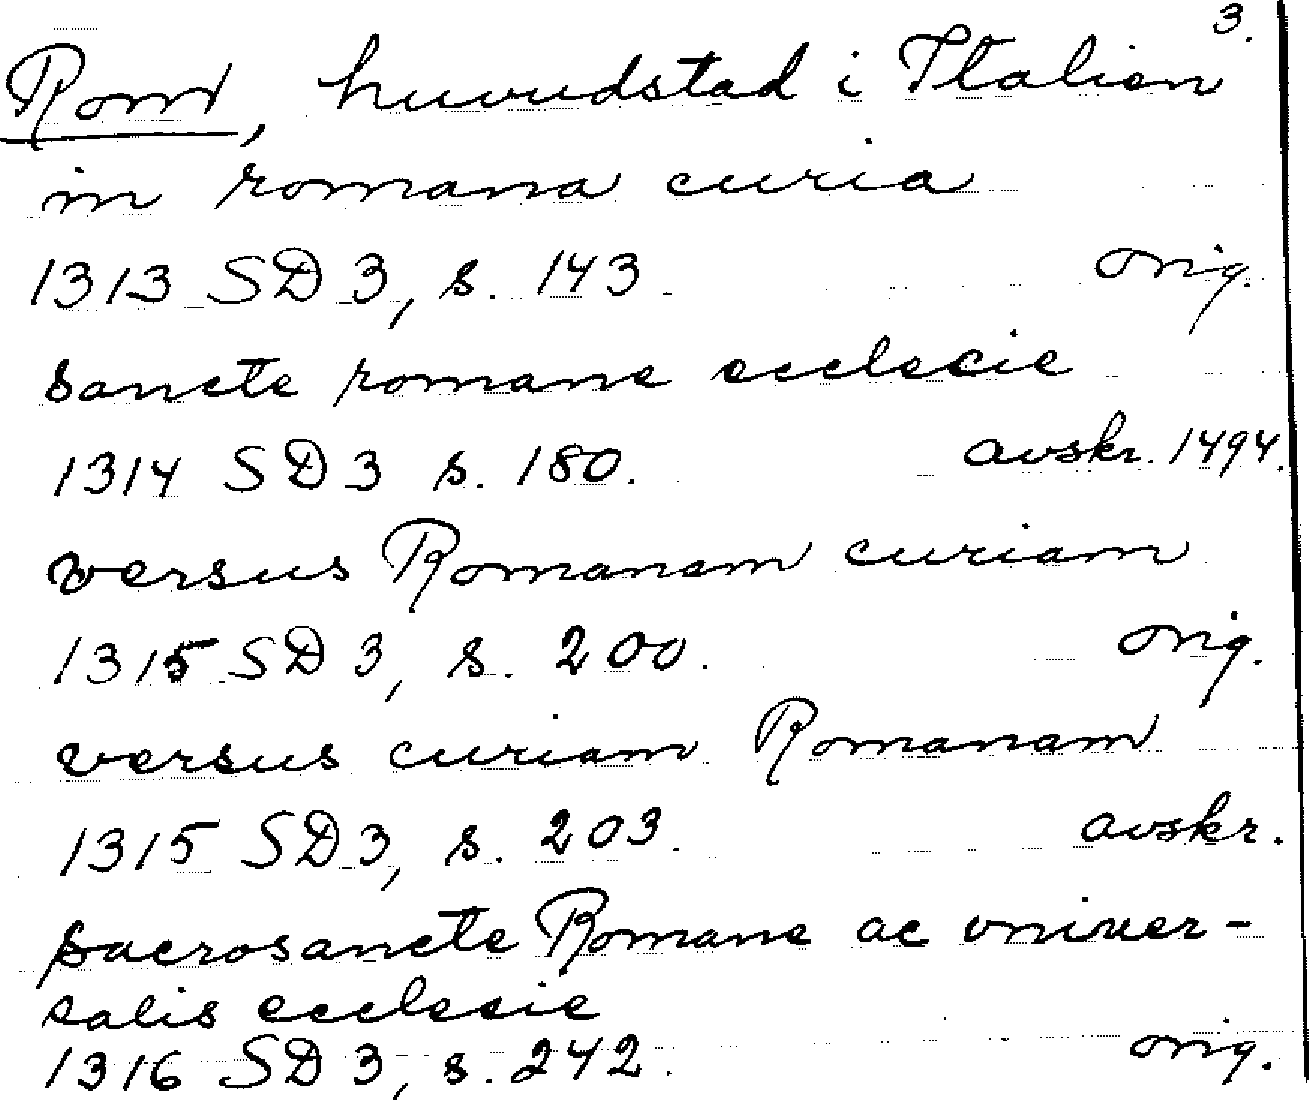 3.
Rom, huvudstad i Italien
in romana curia
1313 SD 3, s. 143. orig.
sancte romane ecclesie
1314 SD 3 s. 180. avskr. 1494.
versus Romanam curiam
1315 SD 3, s. 200. orig.
versus curiam Romanam
1315 SD 3, s. 203. avskr.
sacrosancte Romane ac vniuer-
salis ecclesie
1316 SD 3, s. 242. orig.